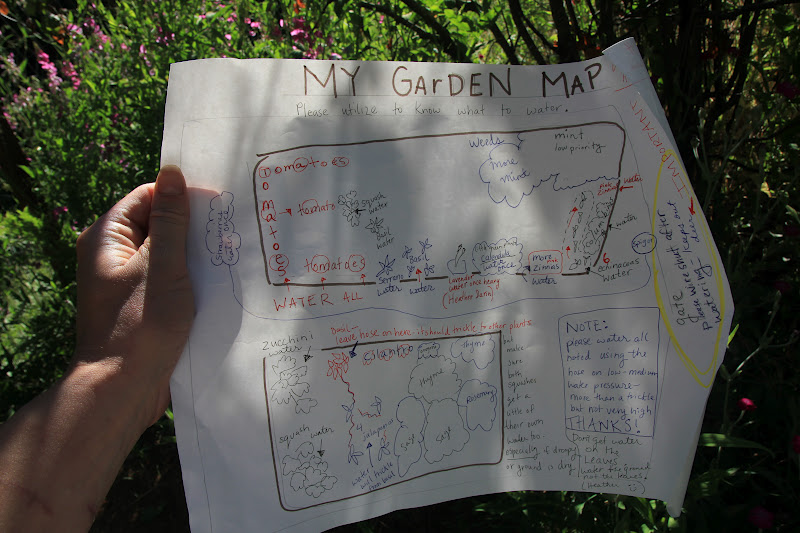 MY GarDEN MAP
Please utilize to know what to water.
tomatoes
tomatoes
tomato
squash
water
basil
water
tomatoes
WATER ALL
Weeds
more
mint
mint
low priority
water
strawberries
water once
Serrano
water
Basil
water
Lavender
water once heavy
calendula
water once
more
zinnas
water
echinaceas
water
water
IMPORTANT
gate
wire shut after
watering-
NOTE:
please water all
noted using the
hose on low-medium
water pressure-
more than a trickle
but not very high
THANKS!
Dont get water
on the
LEAVES
water the ground
not the leaves.
(Heather ☺)
zucchini
water
Basil-
leave hose on here, it should trickle to other plants
cilantro
Thyme
Thyme
Rosemary
Sage
Sage
4 Jalapeños
squash water
water
but
make
sure
both
squashes
get a
little of
their own
water too
especially if droopy
or ground is dry.